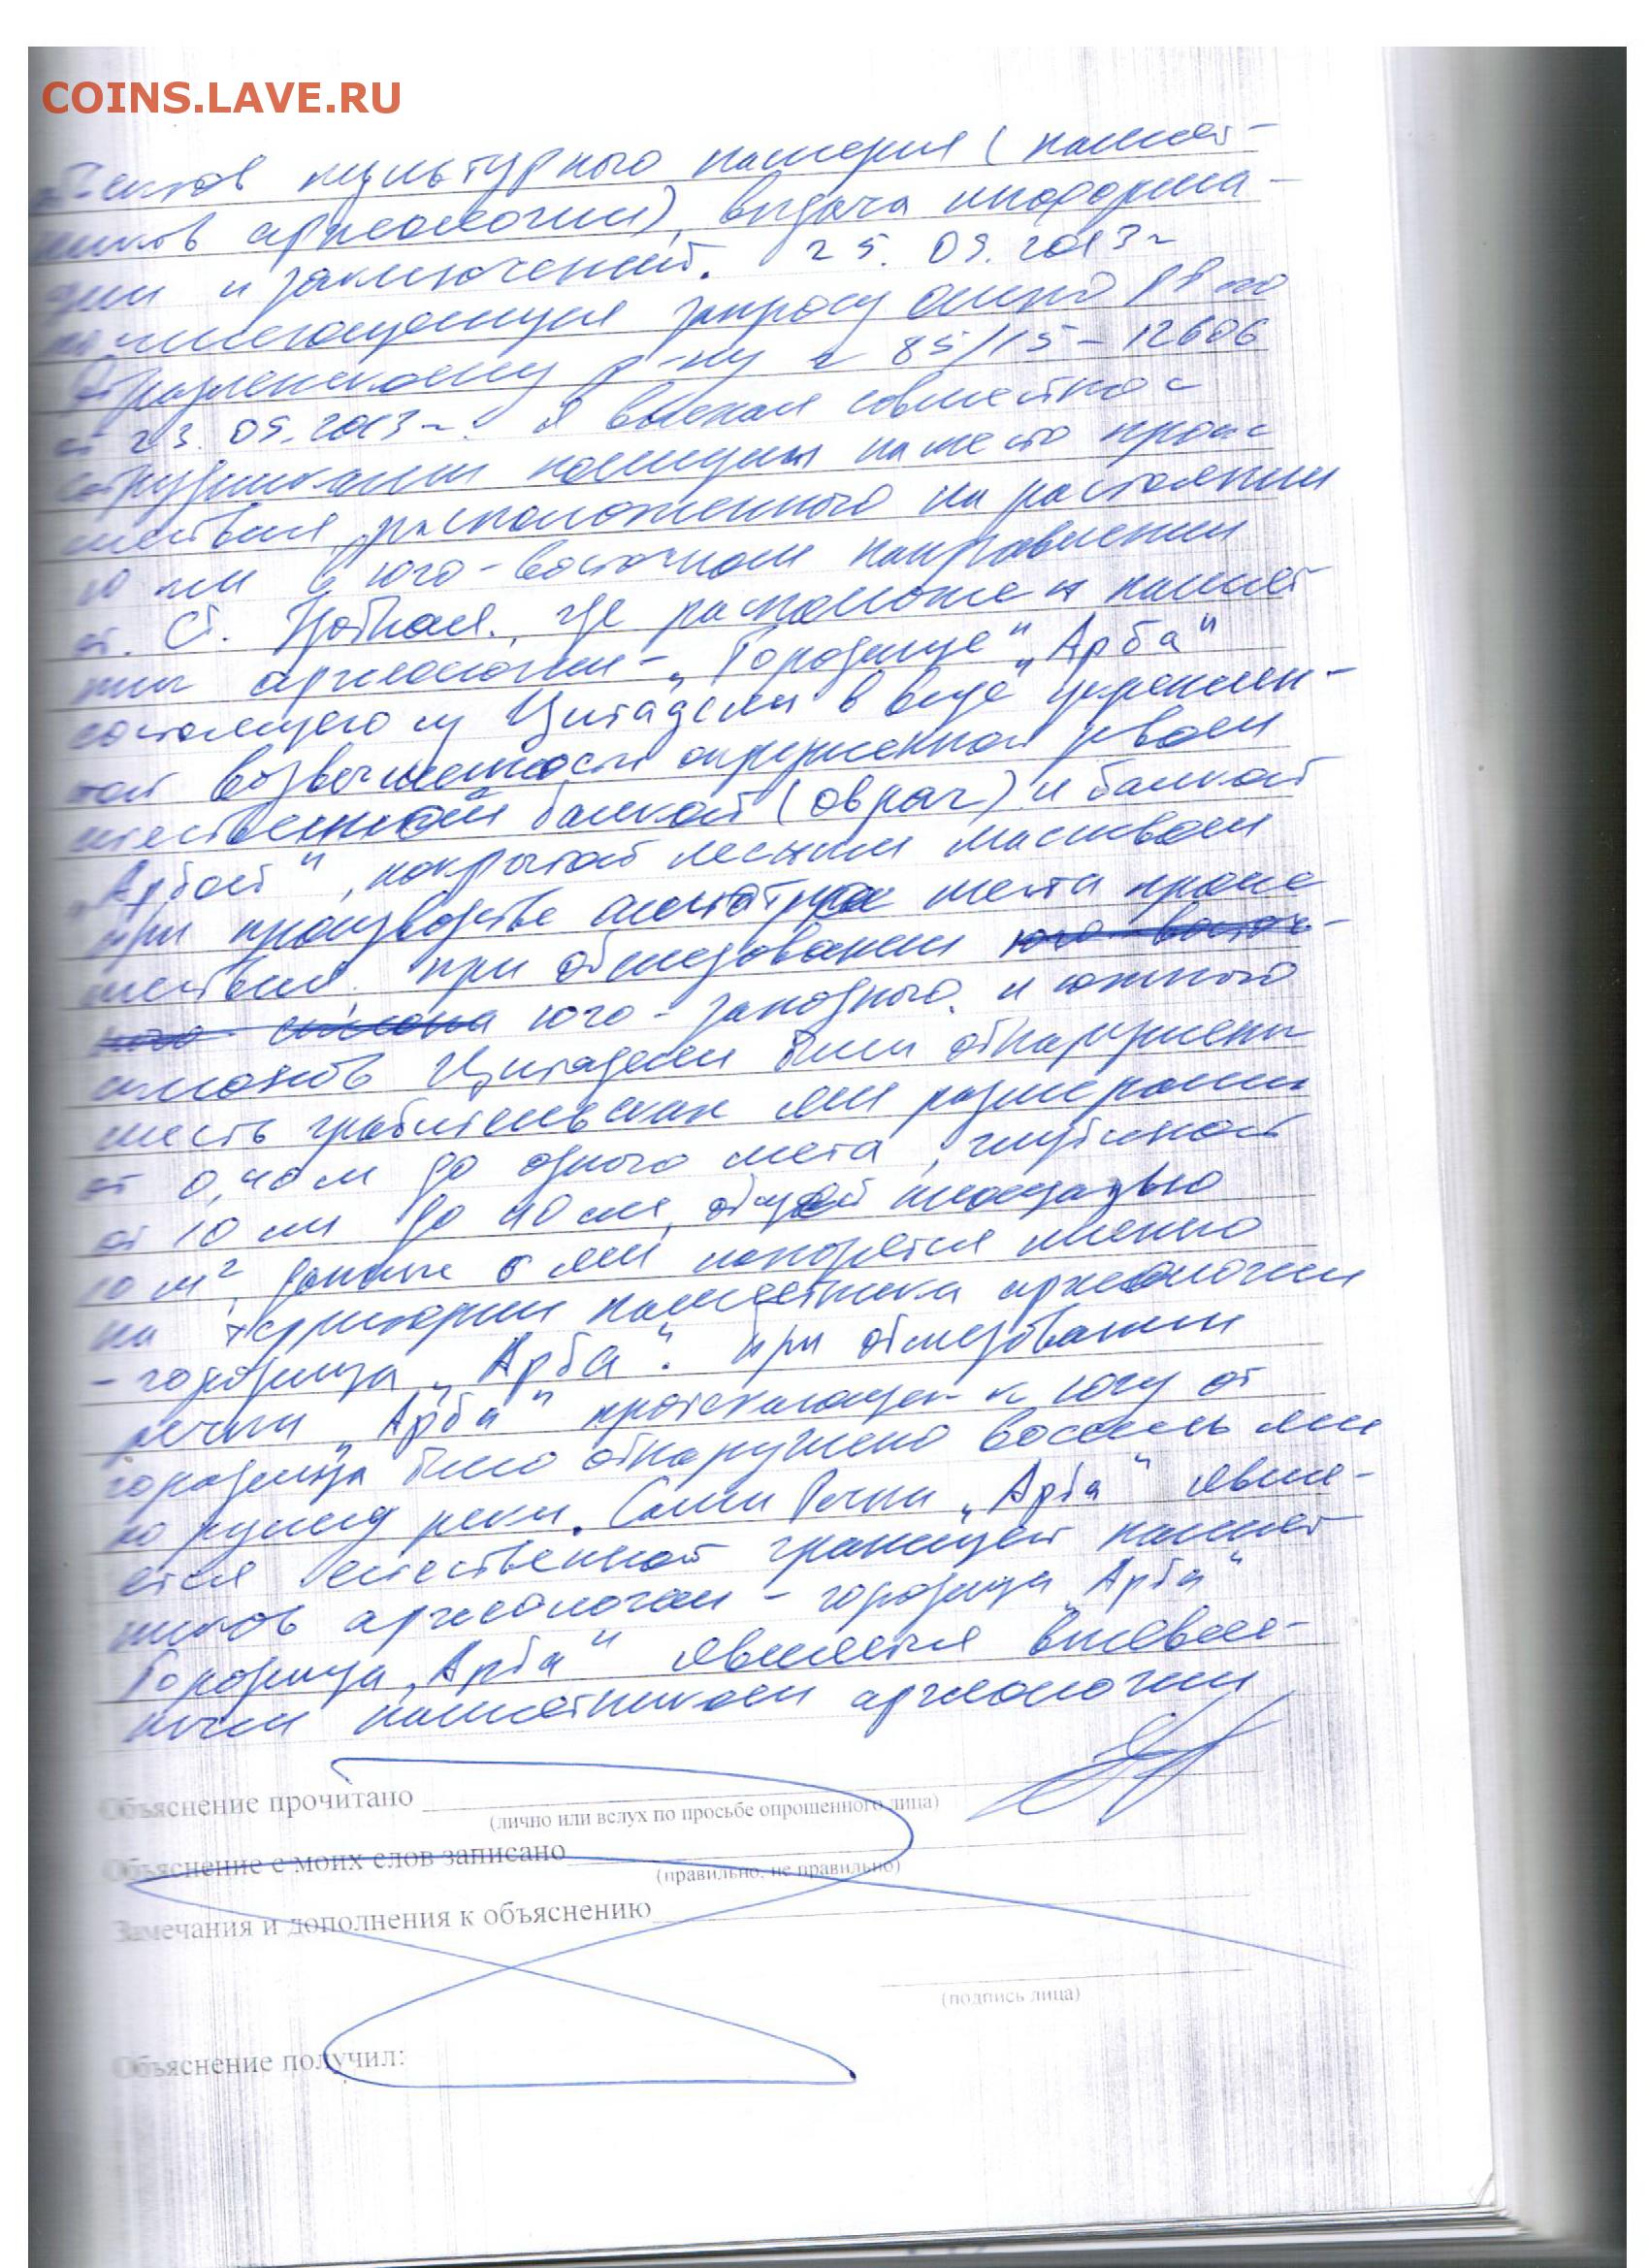 COINS.LAVE.RU
объектов культурного наследия (памят-
ников археологии), выдача информа-
ции и заключений. 25.09.2013г
по запросу
р-ну 85/15-12606
от 23.09.2013г. Я выехал совместно с
сотрудниками полиции на место проис
шествия, расположенного на расстоянии
10 км в юго-восточном направлении
от. ст. где расположен памят
ник археологии - „Городище" „Арба"
состоящего из Цитадели в виде укреплен-
ной возвышенности окруженной рвом
естественной балкой (овраг) и балкой
„Арбой", покрытой лесным массивом
при производстве осмотра места проис
шествия, при обследовании юго-восточ-
ного склона юго-западного и южного
склонов Цитадели были обнаружены
шесть грабительских ям размерами
от 0,40 м до одного метра, глубиной
от 10 см до 40 см, общей площадью
10 м², данные 6 ям находятся именно
на территории памятника археологии
- городища „Арба". При обследовании
речки „Арба" протекающей к югу от
городища было обнаружено восемь ям
по руслу реки. Сама речка „Арба" явля-
ется естественной границей памят
ников археологии - городища „Арба"
Городища „Арба" является
памятником археологии
Объяснение прочитано
(лично или вслух по просьбе опрошенного лица)
Объяснение с моих слов записано
(правильно, не правильно)
Замечания и дополнения к объяснению
(подпись лица)
Объяснение получил: